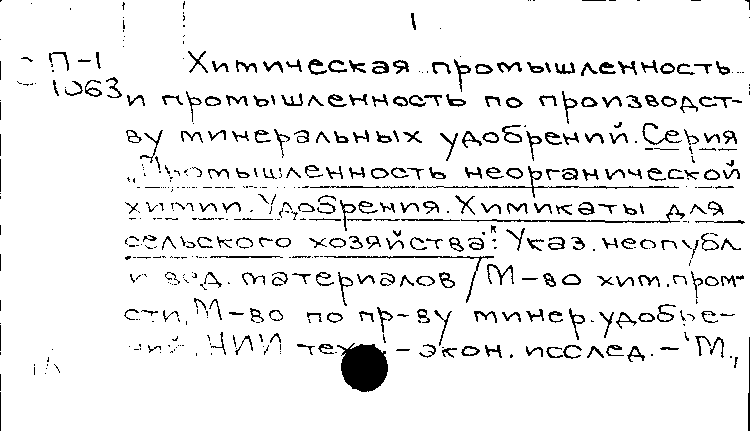 1
П-1 Химическая промышленность
1063 и промышленность по производст-
ву минеральных удобрений. Серия
„Промышленность неорганической
химии. Удобрения. Химикаты для
сельского хозяйства“: Указ. неопубл
и вед. материалов / М-во хим. пром-
сти, М-во по пр-ву минер. удобре-
ний, НИИ техн.-экон. исслед. - М.,